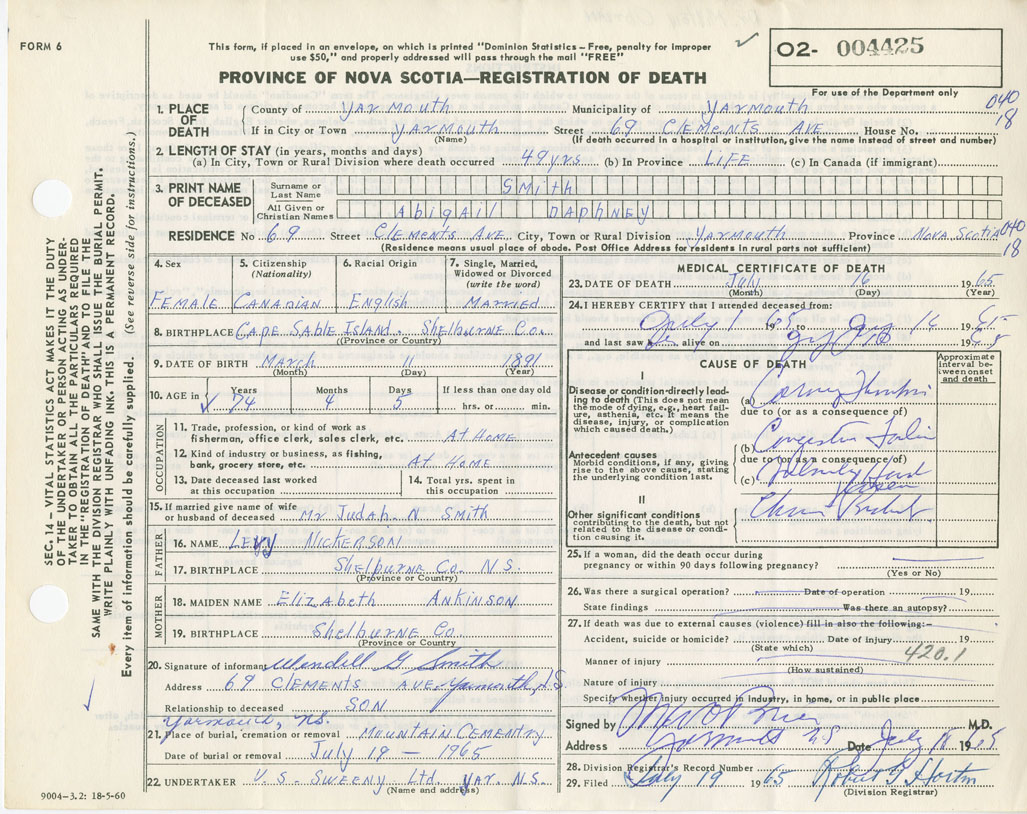 FORM 6
This form, if placed in an envelope, on which is printed "Dominion Statistics – Free, penalty for improper
use $50," and properly addressed will pass through the mail "FREE"
02- 004425
PROVINCE OF NOVA SCOTIA—REGISTRATION OF DEATH
For use of the Department only
040
18
1. PLACE OF DEATH County of Yarmouth Municipality of Yarmouth
If in City or Town Yarmouth Street 69 Clements Ave House No.
(Name) (If death occurred in a hospital or institution, give name instead of street and number)
2. LENGTH OF STAY (in years, months and days)
(a) In City, Town or Rural Division where death occurred 49 yrs (b) In Province LIFE (c) In Canada (if immigrant)
3. PRINT NAME OF DECEASED Surname or Last Name Smith
All Given or Christian Names Abigail Daphney
RESIDENCE No 69 Street Clements Ave. City, Town or Rural Division Yarmouth Province Nova Scotia 040
(Residence means usual place of abode. Post Office Address for residents in rural parts not sufficient) 18
4. Sex
Female
5. Citizenship
(Nationality)
Canadian
6. Racial Origin
English
7. Single, Married,
Widowed or Divorced
(write the word)
Married
8. BIRTHPLACE Cape Sable Island. Shelburne Co.
(Province or Country)
9. DATE OF BIRTH March 11 1891
(Month) (Day) (Year)
10. AGE in Years 74 Months 4 Days 5 If less than one day old
hrs. or min.
OCCUPATION
11. Trade, profession, or kind of work as
fisherman, office clerk, sales clerk, etc. At Home
12. Kind of industry or business, as fishing,
bank, grocery store, etc. At Home
13. Date deceased last worked
at this occupation
14. Total yrs. spent in
this occupation
15. If married give name of wife
or husband of deceased Mr Judah N. Smith
FATHER
16. NAME Levy Nickerson
17. BIRTHPLACE Shelburne Co. N.S.
(Province or Country)
MOTHER
18. MAIDEN NAME Elizabeth Ankinson
19. BIRTHPLACE Shelburne Co
(Province or Country)
20. Signature of informant Wendell G Smith
Address 69 Clements Ave. Yarmouth, N.S.
Relationship to deceased SON
Yarmouth, N.S.
21. Place of burial, cremation or removal Mountain Cementry
Date of burial or removal July 19 – 1965
22. UNDERTAKER V. S. Sweeny Ltd. Yar. N.S.
(Name and address)
9004–3.2: 18-5-60
MEDICAL CERTIFICATE OF DEATH
23. DATE OF DEATH July 16 1965
(Month) (Day) (Year)
24. I HEREBY CERTIFY that I attended deceased from:
1 1965 to 16 19
and last saw alive on 19
CAUSE OF DEATH
Approximate
interval between onset
and death
I
Disease or condition directly leading to death (This does not mean
the mode of dying, e.g., heart failure, asthenia, etc. It means the
disease, injury, or complication
which caused death.)
(a)
due to (or as a consequence of)
Antecedent causes
Morbid conditions, if any, giving
rise to the above cause, stating
the underlying condition last.
(b)
due to (or as a consequence of)
(c)
II
Other significant conditions
contributing to the death, but not
related to the disease or condition
causing it.
25. If a woman, did the death occur during
pregnancy or within 90 days following pregnancy?
(Yes or No)
26. Was there a surgical operation? Date of operation 19
State findings Was there an autopsy?
27. If death was due to external causes (violence) fill in also the following:–
Accident, suicide or homicide? Date of injury 19
(State which) 420.1
Manner of injury
(How sustained)
Nature of injury
Specify whether injury occurred in industry, in home, or in public place
Signed by M.D.
Address Yarmouth NS Date July 18 1965
28. Division Registrar's Record Number
29. Filed July 19 1965 Robert Horton
(Division Registrar)
SEC. 14 – VITAL STATISTICS ACT MAKES IT THE DUTY
OF THE UNDERTAKER OR PERSON ACTING AS UNDERTAKER
TO OBTAIN ALL THE PARTICULARS REQUIRED
IN THE "REGISTRATION OF DEATH" AND TO FILE THE
SAME WITH THE DIVISION REGISTRAR WHO SHALL ISSUE THE BURIAL PERMIT.
WRITE PLAINLY WITH UNFADING INK. THIS IS A PERMANENT RECORD.
Every item of information should be carefully supplied. (See reverse side for instructions.)